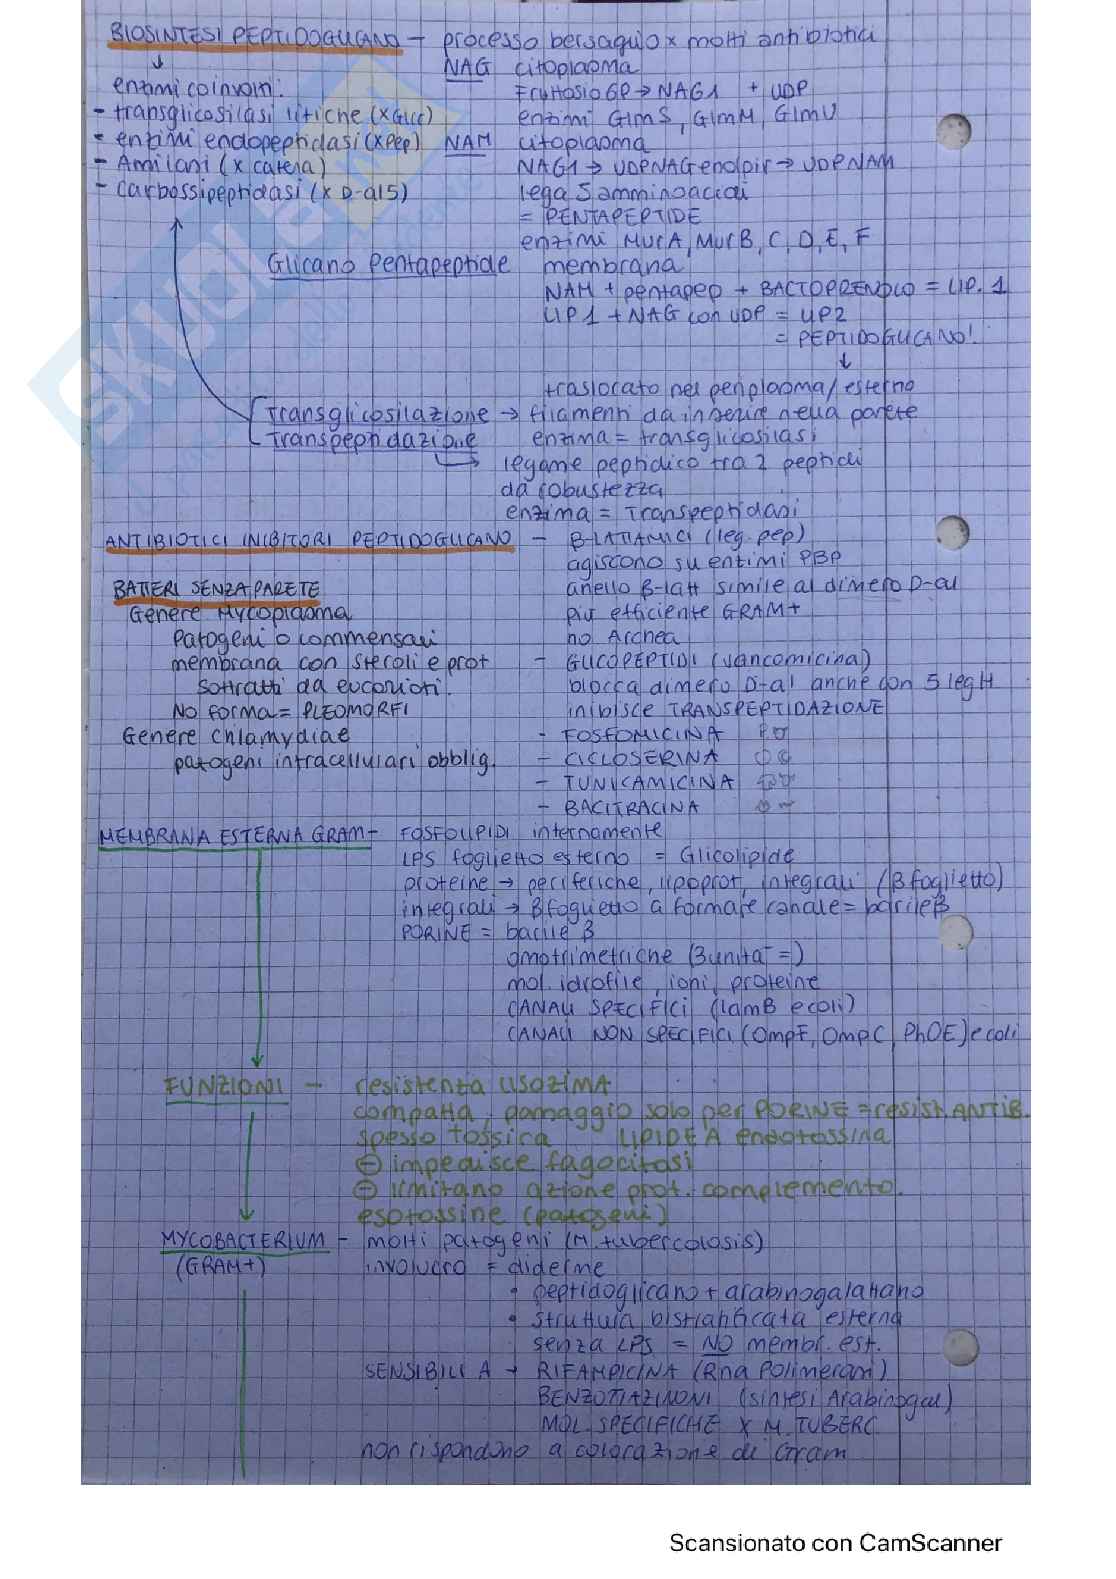 BIOSINTESI PEPTIDOGLICANO - processo bersaglio x molti antibiotici
NAG citoplasma
enzimi coinvolti:
Fruttosio 6P → NAG1 + UDP
- transglicosilasi litiche (x Glic)
enzimi GlmS, GlmM, GlmU
- enzimi endopeptidasi (x pep)
NAM citoplasma
- Amilasi (x catena)
NAG1 → UDPNAG enolpir → UDPNAM
- carbossipeptidasi (x D-al5)
lega 5 amminoacidi
= PENTAPEPTIDE
enzimi MurA, MurB, C, D, E, F
Glicano Pentapeptide membrana
NAM + pentapep + BACTOPRENOLO = LIP. 1
LIP1 + NAG con UDP = LIP2
= PEPTIDOGLICANO!
traslocato nel periplasma/esterno
Transglicosilazione → filamenti da inserire nella parete
enzima = transglicosilasi
Transpeptidazione
legame peptidico tra 2 peptidi
da robustezza
enzima = Transpeptidasi
ANTIBIOTICI INIBITORI PEPTIDOGLICANO - B-LATTAMICI (leg. pep)
agiscono su enzimi PBP
BATTERI SENZA PARETE
anello β-latt simile al dimero D-al
Genere Mycoplasma
più efficiente GRAM+
Patogeni o commensali
no Archea
membrana con steroli e prot
- GLICOPEPTIDI (vancomicina)
sottratti da eucarioti.
blocca dimero D-al anche con 5 leg H
No forma = PLEOMORFI
inibisce TRANSPEPTIDAZIONE
Genere chlamydiae
- FOSFOMICINA
patogeni intracellulari obblig.
- CICLOSERINA
- TUNICAMICINA
- BACITRACINA
MEMBRANA ESTERNA GRAM- FOSFOLIPIDI internamente
LPS foglietto esterno = Glicolipide
proteine → periferiche, lipoprot, integrali (β foglietto)
integrali → β foglietto a formare canale = barile β
PORINE = barile β
omotrimetriche (3 unità =)
mol. idrofile, ioni, proteine
CANALI SPECIFICI (lamB e coli)
CANALI NON SPECIFICI (OmpF, OmpC, PhOE) e coli
FUNZIONI - resistenza LISOZIMA
compatta, passaggio solo per PORINE = resist. ANTIB.
spesso tossica LIPIDE A endotossina
⊖ impedisce fagocitosi
⊖ limitano azione prot. complemento.
esotossine (patogeni)
MYCOBACTERIUM - molti patogeni (M. tubercolosis)
(GRAM+) involucro = diderme
• peptidoglicano + arabinogalattano
• struttura bistratificata esterna
senza LPS = NO membr. est.
SENSIBILI A → RIFAMPICINA (Rna Polimerasi)
BENZOTIAZINONI (sintesi Arabinogal)
MOL. SPECIFICHE X M. TUBERC
non rispondono a colorazione di Gram
Scansionato con CamScanner